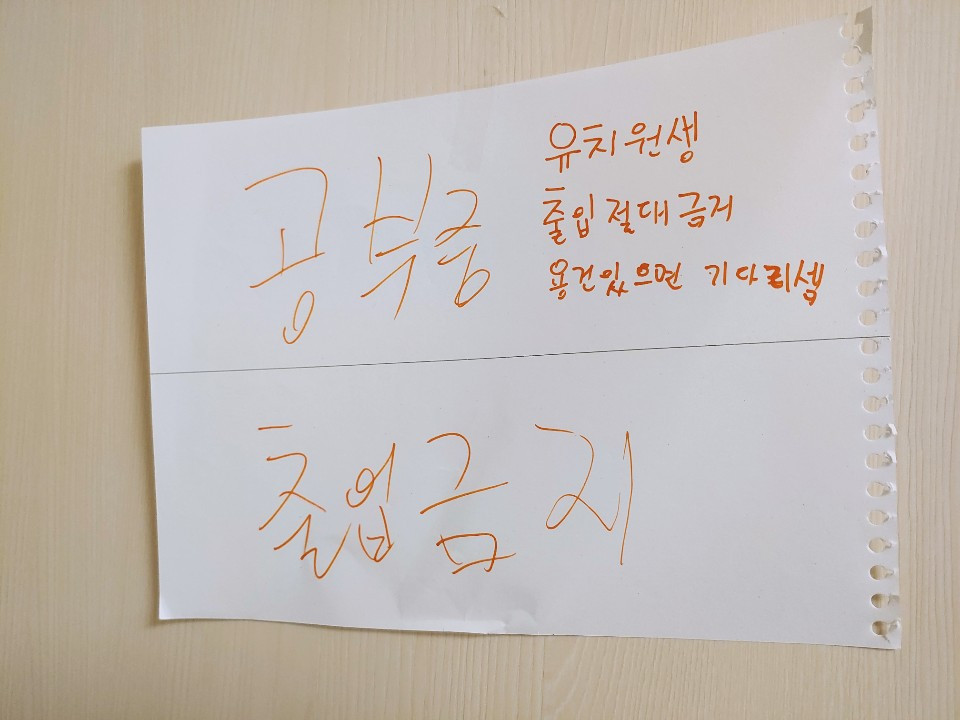 공부중
유치원생
출입절대금지
용건있으면 기다리셈
출입금지